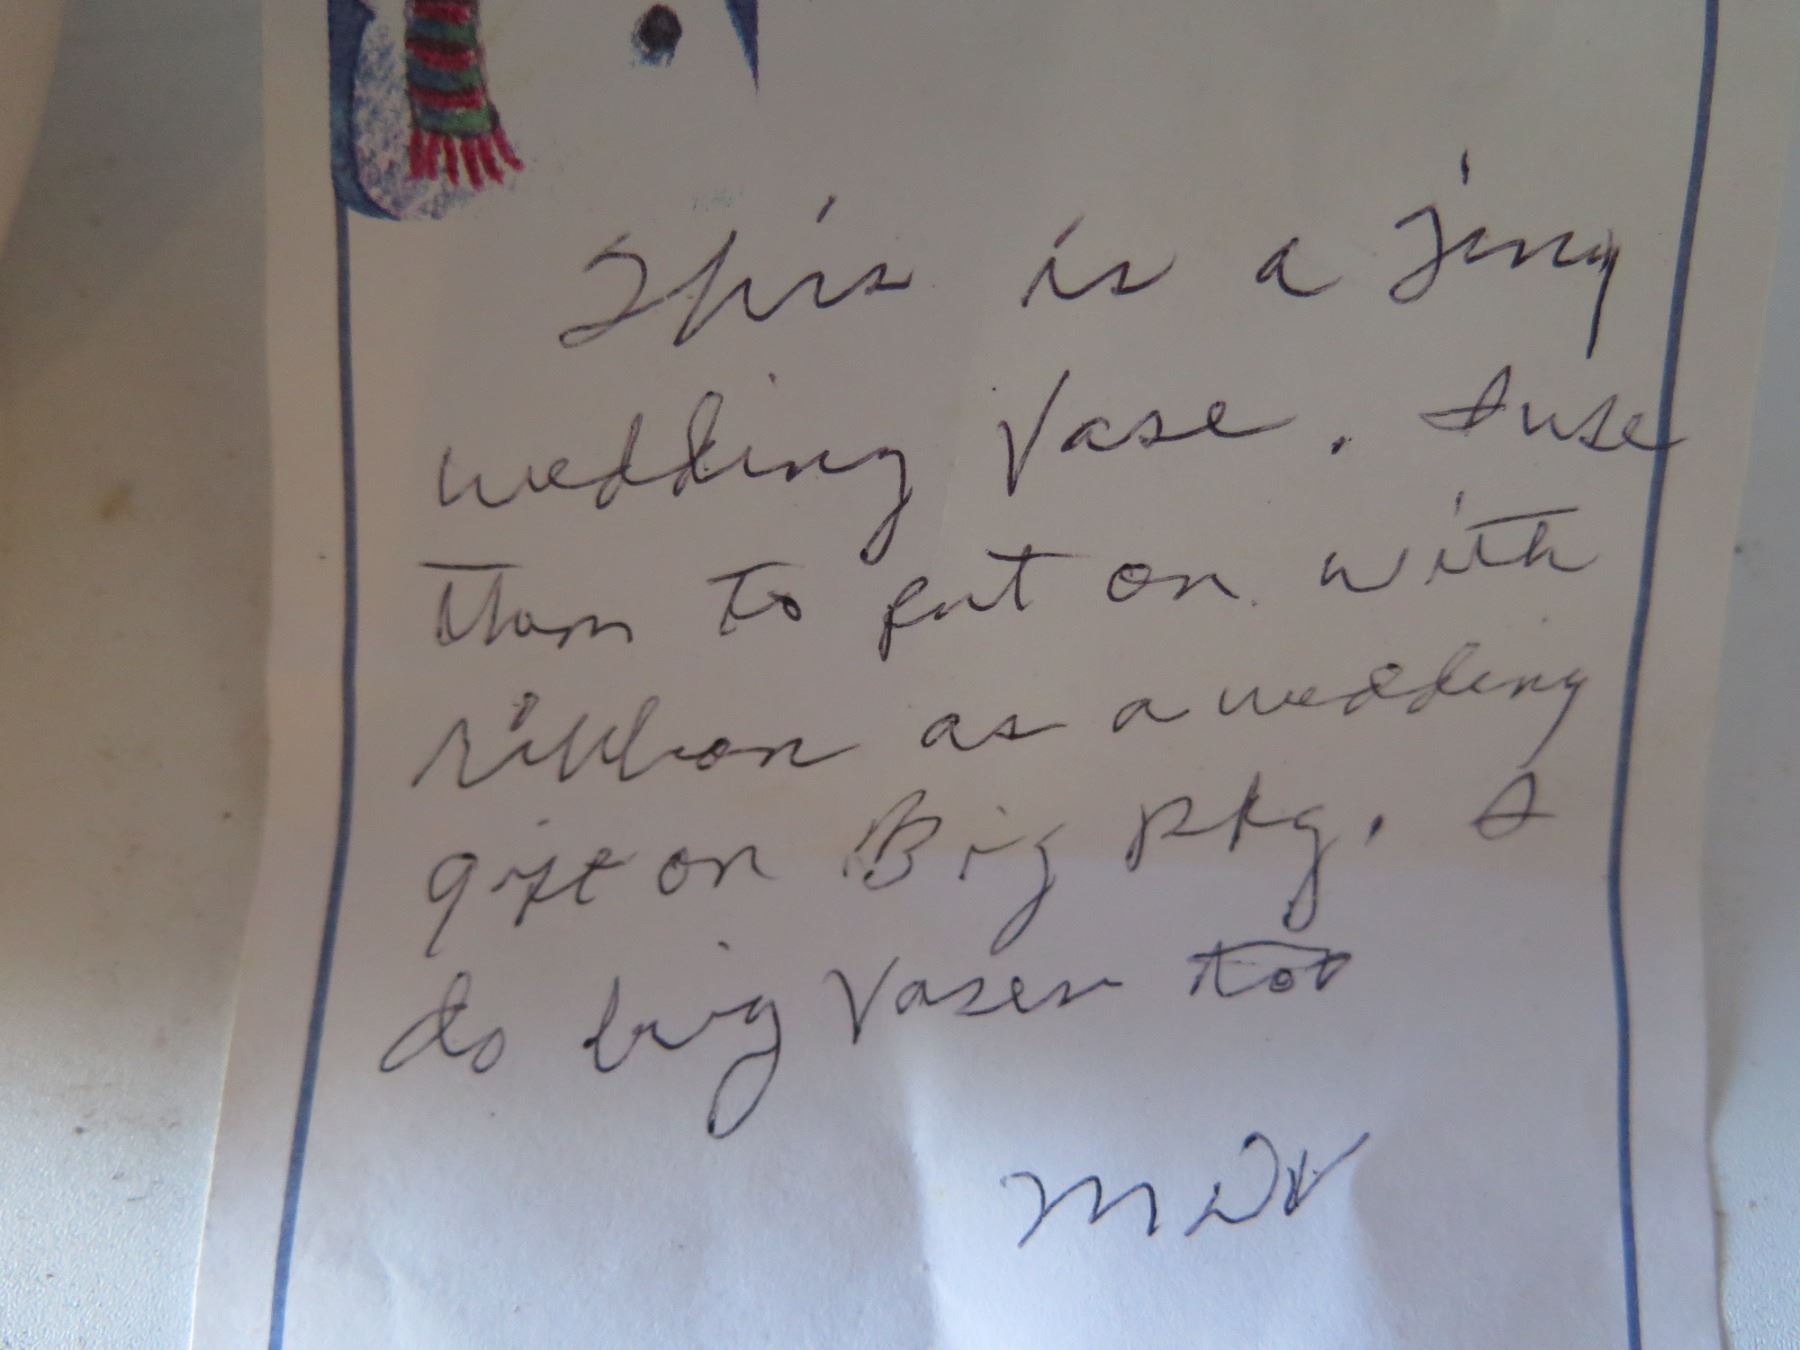 This is a Tiny
wedding Vase. I use
them to put on with
ribbon as a wedding
gift on Big pkg. I
do big Vases too
MDV